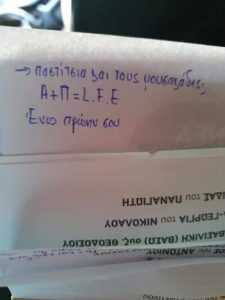 → παστίτσια και τους μουσακάδες,
Α+Π=L.F.E
Ένας πρώην σου
ΔΑΣ του ΠΑΝΑΓΙΩΤΗ
-ΓΕΩΡΓΙΑ του ΝΙΚΟΛΑΟΥ
ΒΑΣΙΛΙΚΗ (ΒΑΣΩ) συζ. ΘΕΟΔΟΣΙΟΥ
του ΑΝΤΩΝΙΟΥ